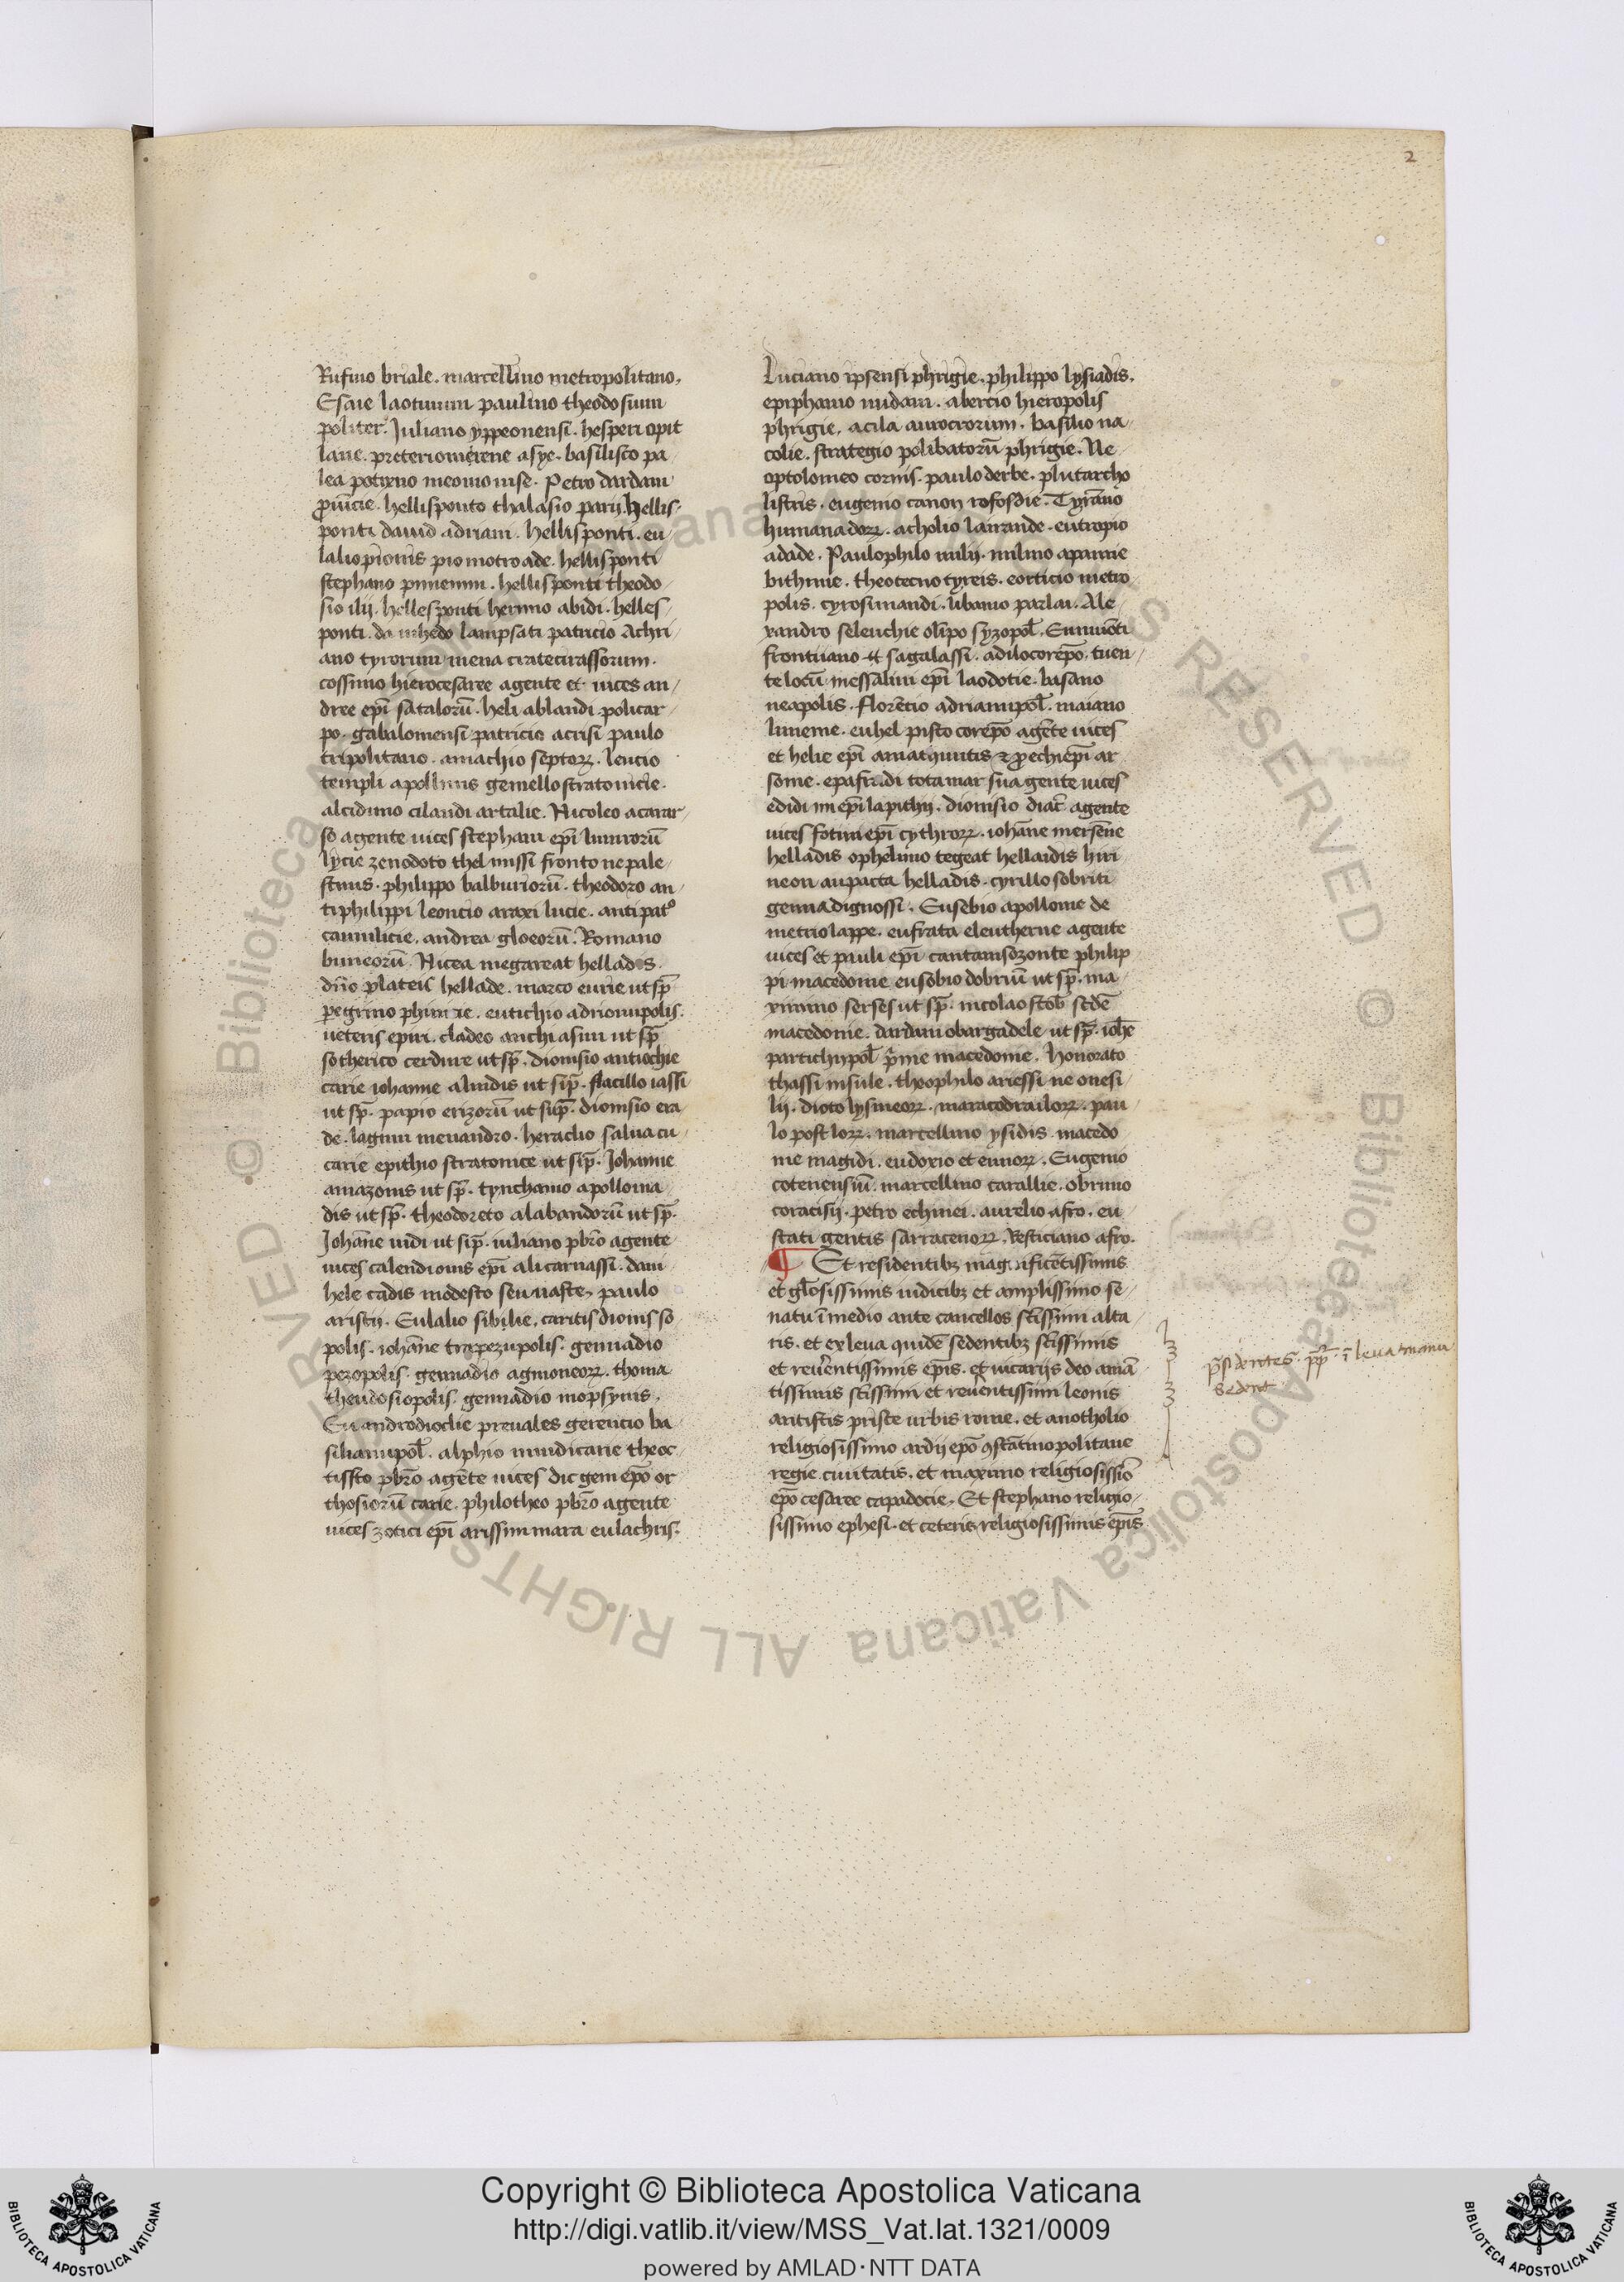 2
Rufino briale. marcellino metropolitano.
Esaie laotinum paulino theodosium
politer. Juliano yppeonensi. hesperi opit
lane. preteriomerene asye. basilisco pa
lea potino meomonise. Petro dardani
prouincie. hellisponto thalasio parii. hellis
ponti dauid adriani. hellisponti. eu
lalio pionis pio motroade. hellisponti
stephano pimenim. hellisponti theodo
sio ilij. hellesponti hermo abidi. helles
ponti. da lampsati patricio Achri
ano tyrorum mena cratecirassorum.
cossimo hierocesaree agente et uices an
dree epi satalorū. heli ablandi policar
po. gabalomensi patricio acrisi paulo
tripolitano. amachio septoꝝ. leucio
templi apollinis gemello stratonicie.
alcidimo cilandi artalie. Nicoleo acarar
so agente uices stephani epi limirorū
lycie zenodoto thelmissi frontonepale
stinis. philippo balburiorū. theodoro an
tiphilippi leoncio araxi lucie. antipato
caunilicie. andrea gloeorū. Romano
buneorū. Nicea megareat hellados.
dño plateis hellade. marco eurie ut sp̄
pegrino phinicie. eutichio adrionupolis.
ueteris epiri. clades anchiasim ut sp̄
sotherico cerdire ut sp̄. dionisio antiochie
carie iohanne alindis ut sup̄. flacillo iassi
ut sp̄. papio erizorū ut sup̄. dionisio era
de. lagini meuandro. heraclio salua cu
carie epithio stratonice ut sup̄. Johanne
amazonis ut sp̄. tynchanio apollonia
dis ut sp̄. theodoreto alabandorū ut sp̄.
Johāne nidi ut sup̄. iuliano pbro agente
uices calendionis epi alicarnassi. dani
hele cadis modesto seuuaste, paulo
aristij. Eulalio sibilie, caritis dionisso
polis. iohāne trapezupolis. gennadio
pezopolis. gennadio agmoneoꝝ. thoma
theudosiopolis. gennadio mopsynis.
Euandrodioclie preuales gerencio ba
silianupol. alphio mindicarie theoc
tissto pbro agēte uices dicgem epo or
thosiorū carie. philotheo pbro agente
uices zotici epi arissim mara eulachris.
Luciano ipsensi phrigie. philippo lysiadis.
epiphanio midani. abercio hieropolis
phrigie. acila aurocrorum. basilio na
colie. strategio polibatorū phrigie. Ne
optolomeo cornis. paulo derbe. plutarcho
listris. eugenio canon rofosdie. Tyrāno
humanadoꝝ. acholio larrande. eutropio
adade. Paulophilo milij. milino apamie
bithinie. theotecno tyreis. eorticio metro
polis. cyrosimandi. libanio parlai. Ale
xandro seleuchie olipo syzopol. Eunuoti
frontiano et sagalassi. adilocorepo. tuen
te locū messalini epi laodotie. basano
neapolis. florētio adrianupol. maiano
limeme. euhel pisto corepo agēte uices
et helie epi amatquntis et pechiepi ar
some. epafr di totamar sua gente uices
edidi in epi lapithij. dionisio diac agente
uices fotini epi cythroꝝ. iohāne mersēne
helladis ophelimo tegeat hellaidis hiri
neon aupacta helladis. cyrillo sobriti
genna dignossi. Eusebio apollonie de
metrio lappe. eufrata eleutherne agente
uices et pauli epi cantamsozonte philip
pi macedonie eusobio dobriū ut sp̄. ma
ximino serses ut sp̄. nicolao stob scdē
macedonie. dardani obargadele ut sp̄. iohē
partichupol p̄me macedonie. Honorato
thassi insule. theophilo ariessi ne onesi
lij. dioto lysineoꝝ. maracodrailoꝝ. pau
lo postloꝝ. marcellino ysidis. macedo
nie magidi. eudoxio et ennoꝝ. Eugenio
cotenensiū. marcellino carallie. obrimo
coracisij. petro echinei. aurelio afro. eu
stati gentis sarracenoꝝ. Resticiano afro.
¶ Et residentibꝫ magnificētissimis
et glosissimis iudicibꝫ et amplissimo se
natu ī medio ante cancellos sctissimi alta
ris. et ex leua quidē sedentibꝫ sctissimis
et reuerentissimis epis. et uicarijs deo amā
tissimis sctissimi et reuerentissimi leonis
antistis priste urbis rome. et anotholio
religiosissimo ardij epo ꝯstātinopolitane
regie ciuitatis. et maximo religiosissīo
epo cesaree capadocie. Et stephano religio
sissimo ephesi. et ceteris religiosissimis epis
p̄sidentes. pp. ī leua manu
sedent
Copyright © Biblioteca Apostolica Vaticana
http://digi.vatlib.it/view/MSS_Vat.lat.1321/0009
powered by AMLAD·NTT DATA
BIBLIOTECA APOSTOLICA VATICANA
BIBLIOTECA APOSTOLICA VATICANA
© Biblioteca Apostolica Vaticana ALL RIGHTS RESERVED